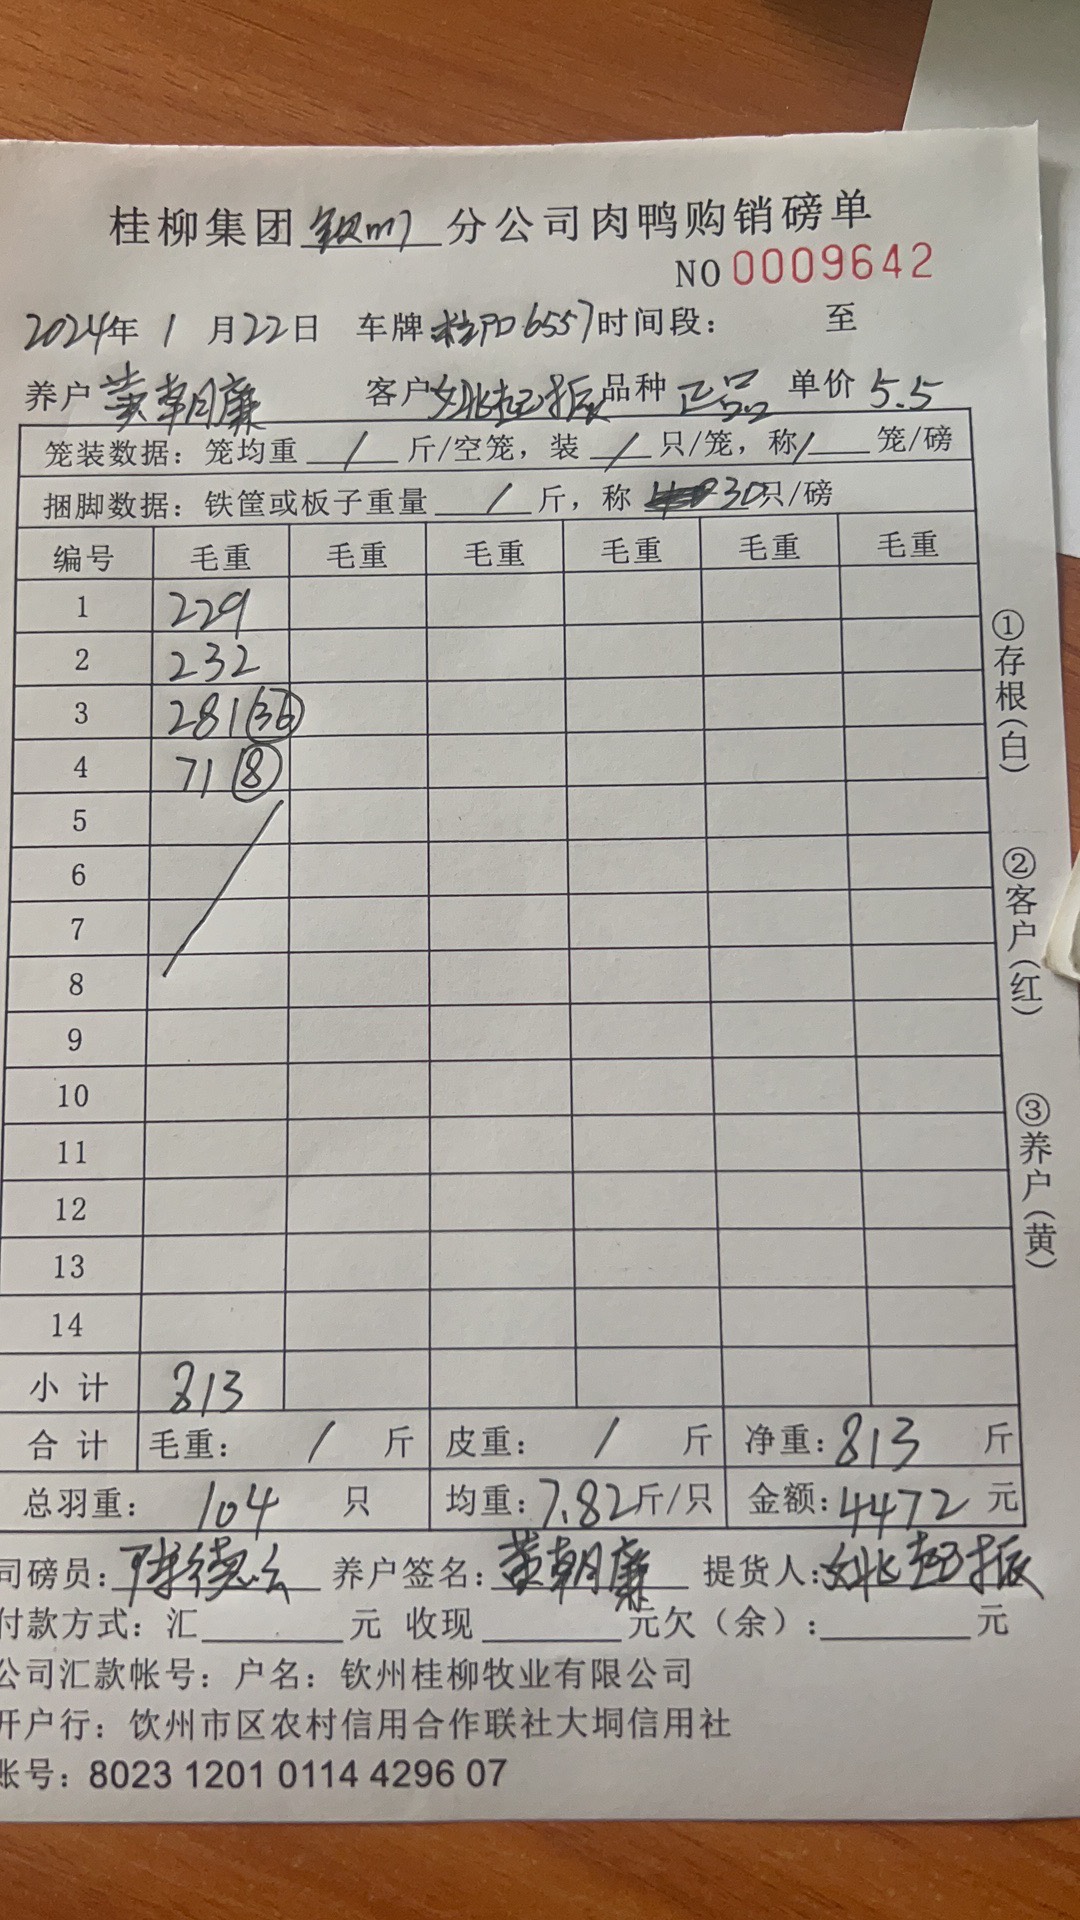 桂柳集团钦州分公司肉鸭购销磅单
NO 0009642
2024年 1 月22日 车牌桂PD6557时间段: 至
养户黄朝廉 客户姚起振品种 正品 单价 5.5
笼装数据: 笼均重 / 斤/空笼, 装 / 只/笼, 称/ 笼/磅
捆脚数据: 铁筐或板子重量 / 斤, 称 30只/磅
编号 毛重 毛重 毛重 毛重 毛重 毛重
1 229
2 232
3 281 (36)
4 71 (8)
5
6
7
8
9
10
11
12
13
14
小计 813
合计 毛重: / 斤 皮重: / 斤 净重: 813 斤
总羽重: 104 只 均重: 7.82斤/只 金额: 4472 元
司磅员: 陈德云 养户签名: 黄朝廉 提货人: 姚起振
付款方式: 汇 元 收现 元欠(余): 元
公司汇款帐号: 户名: 钦州桂柳牧业有限公司
开户行: 饮州市区农村信用合作联社大垌信用社
账号: 8023 1201 0114 4296 07
①存根(白)
②客户(红)
③养户(黄)